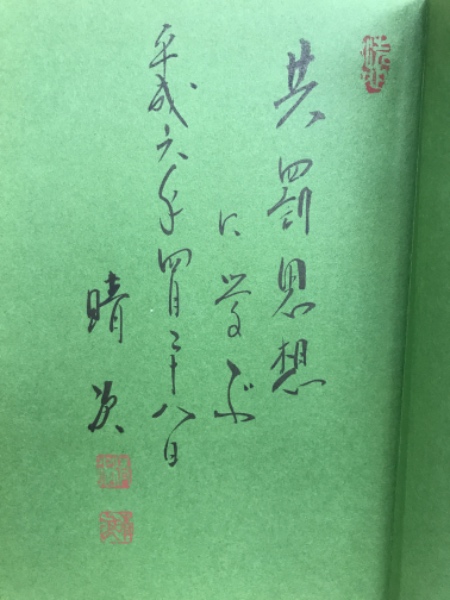 共罰思想
に学ぶ
平成六年四月二十八日
晴次